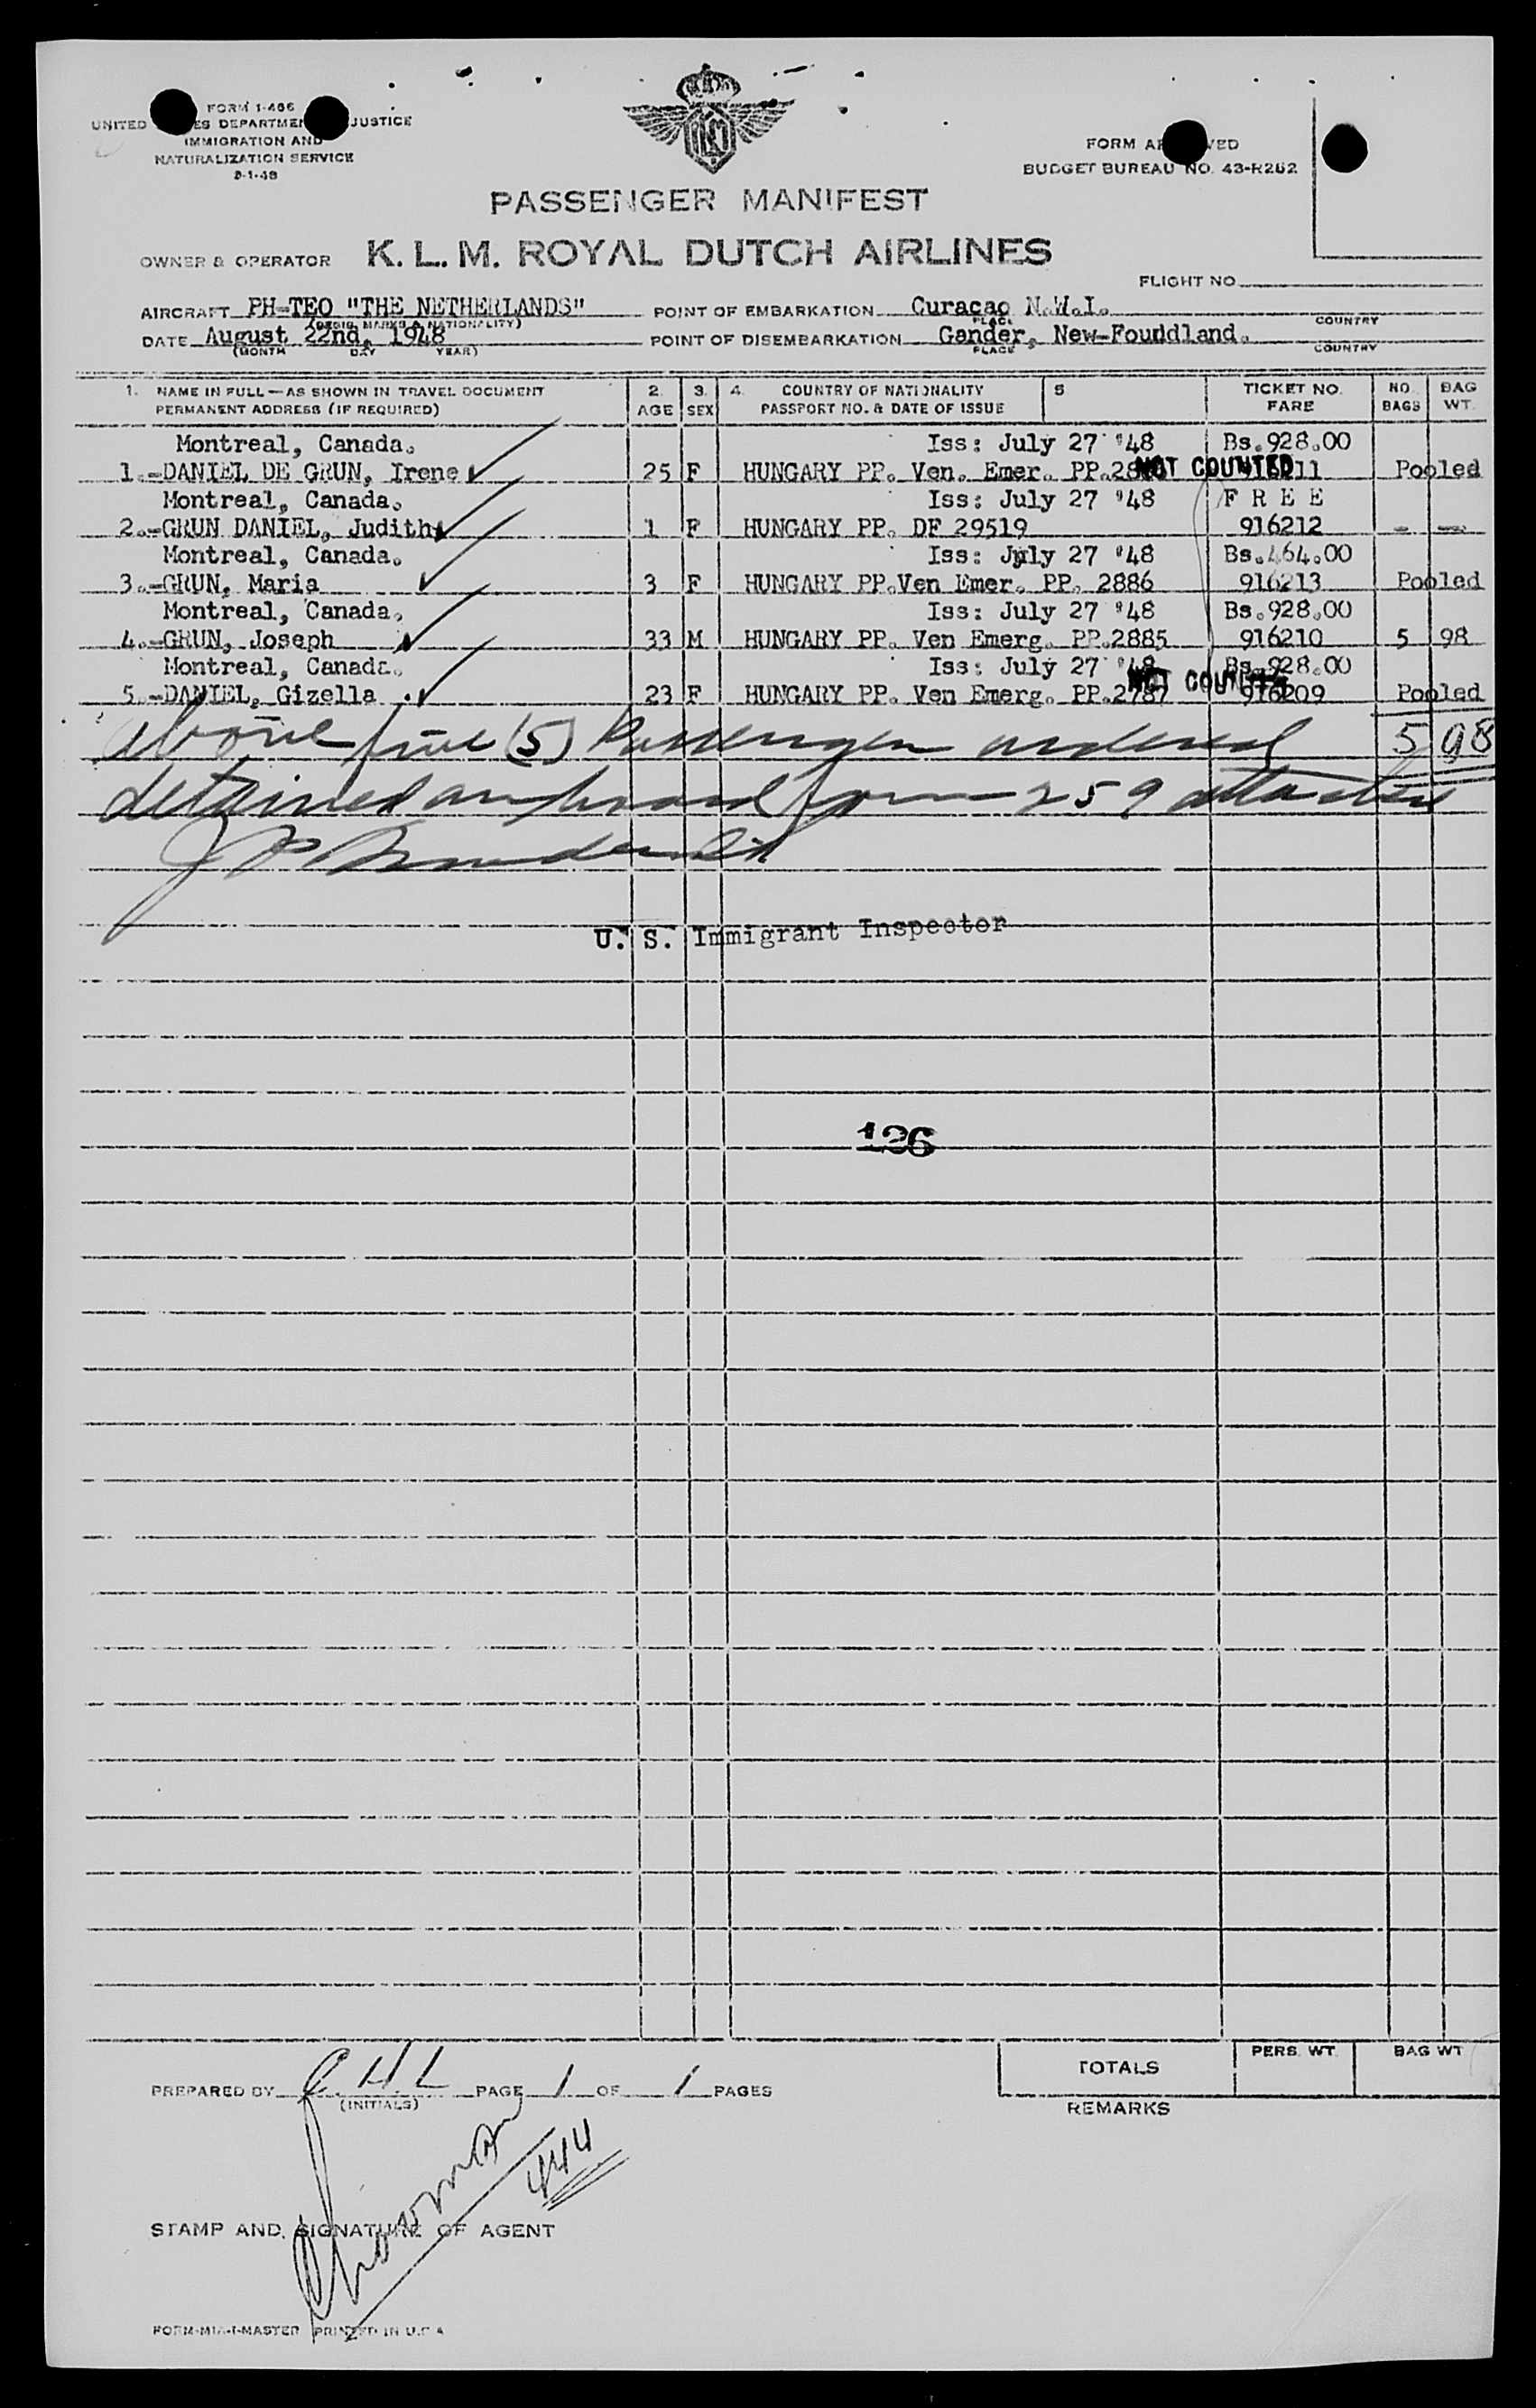 FORM I-466
UNITED ES DEPARTMEN JUSTICE
IMMIGRATION AND
NATURALIZATION SERVICE
KLM
FORM AP VED
BUDGET BUREAU NO. 43-R262
PASSENGER MANIFEST
OWNER & OPERATOR K. L. M. ROYAL DUTCH AIRLINES
FLIGHT NO.
AIRCRAFT PH-TEO "THE NETHERLANDS" POINT OF EMBARKATION Curaçao N.W.I.
(REGIS. MARKS & NATIONALITY) PLACE COUNTRY
DATE August 22nd, 1948 POINT OF DISEMBARKATION Gander, New-Foundland.
(MONTH DAY YEAR) PLACE COUNTRY
1. NAME IN FULL—AS SHOWN IN TRAVEL DOCUMENT 2. 3. 4. COUNTRY OF NATIONALITY 5 TICKET NO. NO. BAG
PERMANENT ADDRESS (IF REQUIRED) AGE SEX PASSPORT NO. & DATE OF ISSUE FARE BAGS WT.
Montreal, Canada. Iss: July 27 '48 Bs.928.00
1.-DANIEL DE GRUN, Irene 25 F HUNGARY PP. Ven. Emer. PP. NOT COUNTED Pooled
Montreal, Canada. Iss: July 27 '48 F R E E
2.-GRUN DANIEL, Judith 1 F HUNGARY PP. DF 29519 916212 - -
Montreal, Canada. Iss: July 27 '48 Bs.464.00
3.-GRUN, Maria 3 F HUNGARY PP.Ven Emer. PP. 2886 916213 Pooled
Montreal, Canada. Iss: July 27 '48 Bs.928.00
4.-GRUN, Joseph 33 M HUNGARY PP. Ven Emerg. PP.2885 916210 5 98
Montreal, Canada. Iss: July 27 '48 Bs.928.00
NOT COUNTED
5.-DANIEL, Gizella 23 F HUNGARY PP. Ven Emerg. PP.2787 916209 Pooled
Above five (5) Passengers ordered 5 98
detained on board form 259 attached
U. S. Immigrant Inspector
126
PREPARED BY PAGE 1 OF 1 PAGES
(INITIALS)
TOTALS PERS. WT. BAG WT
REMARKS
444
STAMP AND SIGNATURE OF AGENT
PRINTED IN U.S.A